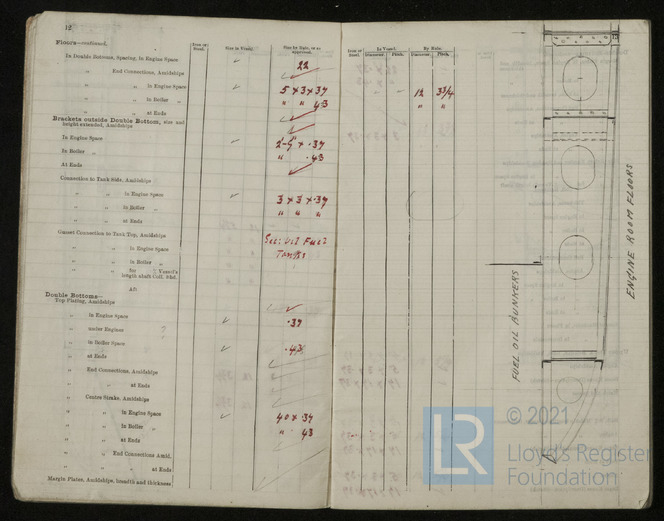 12
Floors—continued.
Iron or Steel.
Size in Vessel.
Size by Rule, or as approved.
In Double Bottoms, Spacing, in Engine Space
22
„ End Connections, Amidships
„ „ in Engine Space 5 × 3 × ·37
„ „ in Boiler „ „ „ 43
„ „ at Ends
Brackets outside Double Bottom, size and
height extended, Amidships
In Engine Space
In Boiler „ „ ·43
At Ends
Connection to Tank Side, Amidships
„ „ in Engine Space 3 × 3 × ·37
„ „ in Boiler „ „ „ „
„ „ at Ends
Gusset Connection to Tank Top, Amidships
„ „ in Engine Space
„ „ in Boiler „
See: Oil Fuel
Tanks
„ „ for ⅗ Vessel's
length abaft Coll. Bhd.
Aft
Double Bottoms—
Top Plating, Amidships
„ in Engine Space ·37
„ under Engines ?
„ in Boiler Space ·43
„ at Ends
„ End Connections, Amidships
„ „ at Ends
„ Centre Strake, Amidships
„ „ in Engine Space 40 × ·37
„ „ in Boiler „ „ 43
„ „ at Ends
„ „ End Connections Amid.
„ „ at Ends
Margin Plates, Amidships, breadth and thickness
Iron or Steel.
In Vessel.
By Rule.
Diameter. Pitch. Diameter. Pitch.
12 3¾
„ „
13
ENGINE ROOM FLOORS
FUEL OIL BUNKERS
LR
© 2021
Lloyd's Register
Foundation